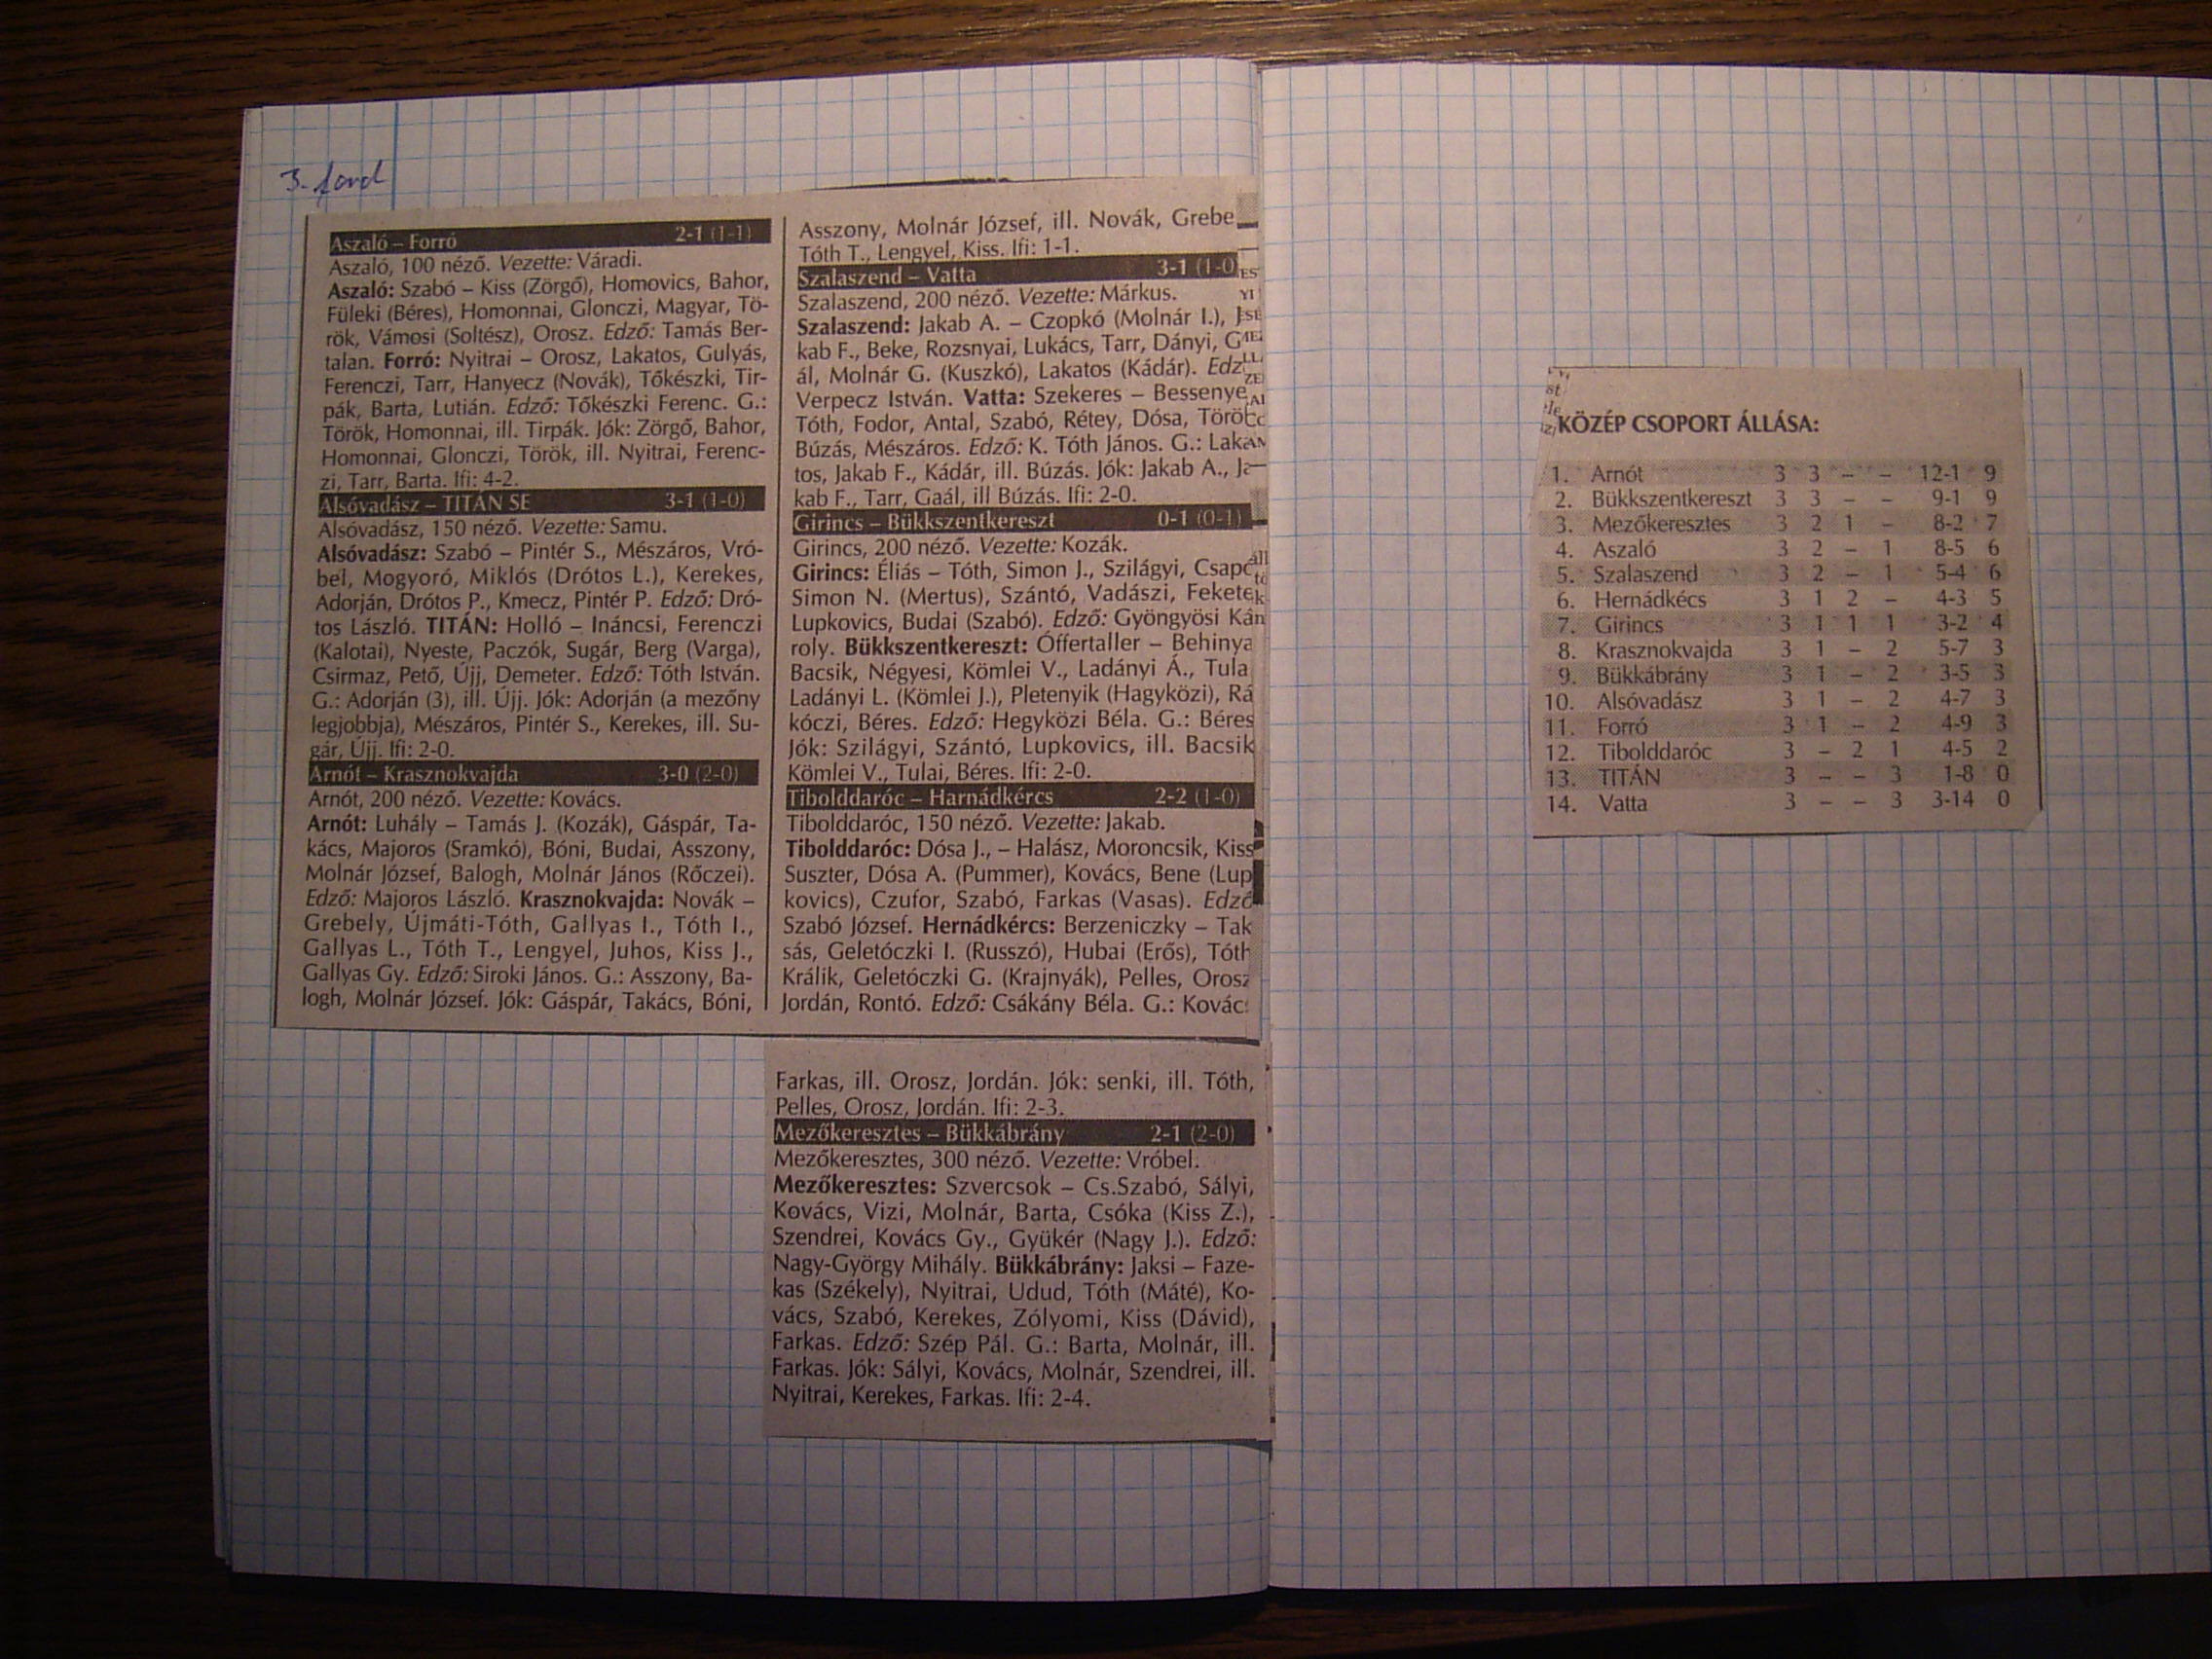 3. ford
Aszaló – Forró 2-1 (1-1)
Aszaló, 100 néző. Vezette: Váradi.
Aszaló: Szabó – Kiss (Zörgő), Homovics, Bahor,
Füleki (Béres), Homonnai, Glonczi, Magyar, Tö-
rök, Vámosi (Soltész), Orosz. Edző: Tamás Ber-
talan. Forró: Nyitrai – Orosz, Lakatos, Gulyás,
Ferenczi, Tarr, Hanyecz (Novák), Tőkészki, Tir-
pák, Barta, Lutián. Edző: Tőkészki Ferenc. G.:
Török, Homonnai, ill. Tirpák. Jók: Zörgő, Bahor,
Homonnai, Glonczi, Török, ill. Nyitrai, Ferenc-
zi, Tarr, Barta. Ifi: 4-2.
Alsóvadász – TITÁN SE 3-1 (1-0)
Alsóvadász, 150 néző. Vezette: Samu.
Alsóvadász: Szabó – Pintér S., Mészáros, Vró-
bel, Mogyoró, Miklós (Drótos L.), Kerekes,
Adorján, Drótos P., Kmecz, Pintér P. Edző: Dró-
tos László. TITÁN: Holló – Ináncsi, Ferenczi
(Kalotai), Nyeste, Paczók, Sugár, Berg (Varga),
Csirmaz, Pető, Újj, Demeter. Edző: Tóth István.
G.: Adorján (3), ill. Újj. Jók: Adorján (a mezőny
legjobbja), Mészáros, Pintér S., Kerekes, ill. Su-
gár, Újj. Ifi: 2-0.
Arnót – Krasznokvajda 3-0 (2-0)
Arnót, 200 néző. Vezette: Kovács.
Arnót: Luhály – Tamás J. (Kozák), Gáspár, Ta-
kács, Majoros (Sramkó), Bóni, Budai, Asszony,
Molnár József, Balogh, Molnár János (Rőczei).
Edző: Majoros László. Krasznokvajda: Novák –
Grebely, Újmáti-Tóth, Gallyas I., Tóth I.,
Gallyas L., Tóth T., Lengyel, Juhos, Kiss J.,
Gallyas Gy. Edző: Siroki János. G.: Asszony, Ba-
logh, Molnár József. Jók: Gáspár, Takács, Bóni,
Asszony, Molnár József, ill. Novák, Grebe
Tóth T., Lengyel, Kiss. Ifi: 1-1.
Szalaszend – Vatta 3-1 (1-0
Szalaszend, 200 néző. Vezette: Márkus.
Szalaszend: Jakab A. – Czopkó (Molnár I.), J
kab F., Beke, Rozsnyai, Lukács, Tarr, Dányi, G
ál, Molnár G. (Kuszkó), Lakatos (Kádár). Edz
Verpecz István. Vatta: Szekeres – Bessenye
Tóth, Fodor, Antal, Szabó, Rétey, Dósa, Török
Búzás, Mészáros. Edző: K. Tóth János. G.: Laka
tos, Jakab F., Kádár, ill. Búzás. Jók: Jakab A., Ja
kab F., Tarr, Gaál, ill Búzás. Ifi: 2-0.
Girincs – Bükkszentkereszt 0-1 (0-1)
Girincs, 200 néző. Vezette: Kozák.
Girincs: Éliás – Tóth, Simon J., Szilágyi, Csapó
Simon N. (Mertus), Szántó, Vadászi, Fekete
Lupkovics, Budai (Szabó). Edző: Gyöngyösi Ká
roly. Bükkszentkereszt: Óffertaller – Behinya
Bacsik, Négyesi, Kömlei V., Ladányi Á., Tula
Ladányi L. (Kömlei J.), Pletenyik (Hagyközi), Rá
kóczi, Béres. Edző: Hegyközi Béla. G.: Béres
Jók: Szilágyi, Szántó, Lupkovics, ill. Bacsik
Kömlei V., Tulai, Béres. Ifi: 2-0.
Tibolddaróc – Harnádkércs 2-2 (1-0)
Tibolddaróc, 150 néző. Vezette: Jakab.
Tibolddaróc: Dósa J., – Halász, Moroncsik, Kiss
Suszter, Dósa A. (Pummer), Kovács, Bene (Lup
kovics), Czufor, Szabó, Farkas (Vasas). Edző
Szabó József. Hernádkércs: Berzeniczky – Tak
sás, Geletóczki I. (Russzó), Hubai (Erős), Tóth
Králik, Geletóczki G. (Krajnyák), Pelles, Orosz
Jordán, Rontó. Edző: Csákány Béla. G.: Kovács
Farkas, ill. Orosz, Jordán. Jók: senki, ill. Tóth,
Pelles, Orosz, Jordán. Ifi: 2-3.
Mezőkeresztes – Bükkábrány 2-1 (2-0)
Mezőkeresztes, 300 néző. Vezette: Vróbel.
Mezőkeresztes: Szvercsok – Cs.Szabó, Sályi,
Kovács, Vizi, Molnár, Barta, Csóka (Kiss Z.),
Szendrei, Kovács Gy., Gyükér (Nagy J.). Edző:
Nagy-György Mihály. Bükkábrány: Jaksi – Faze-
kas (Székely), Nyitrai, Udud, Tóth (Máté), Ko-
vács, Szabó, Kerekes, Zólyomi, Kiss (Dávid),
Farkas. Edző: Szép Pál. G.: Barta, Molnár, ill.
Farkas. Jók: Sályi, Kovács, Molnár, Szendrei, ill.
Nyitrai, Kerekes, Farkas. Ifi: 2-4.
KÖZÉP CSOPORT ÁLLÁSA:
1. Arnót 3 3 – – 12-1 9
2. Bükkszentkereszt 3 3 – – 9-1 9
3. Mezőkeresztes 3 2 1 – 8-2 7
4. Aszaló 3 2 – 1 8-5 6
5. Szalaszend 3 2 – 1 5-4 6
6. Hernádkécs 3 1 2 – 4-3 5
7. Girincs 3 1 1 1 3-2 4
8. Krasznokvajda 3 1 – 2 5-7 3
9. Bükkábrány 3 1 – 2 3-5 3
10. Alsóvadász 3 1 – 2 4-7 3
11. Forró 3 1 – 2 4-9 3
12. Tibolddaróc 3 – 2 1 4-5 2
13. TITÁN 3 – – 3 1-8 0
14. Vatta 3 – – 3 3-14 0